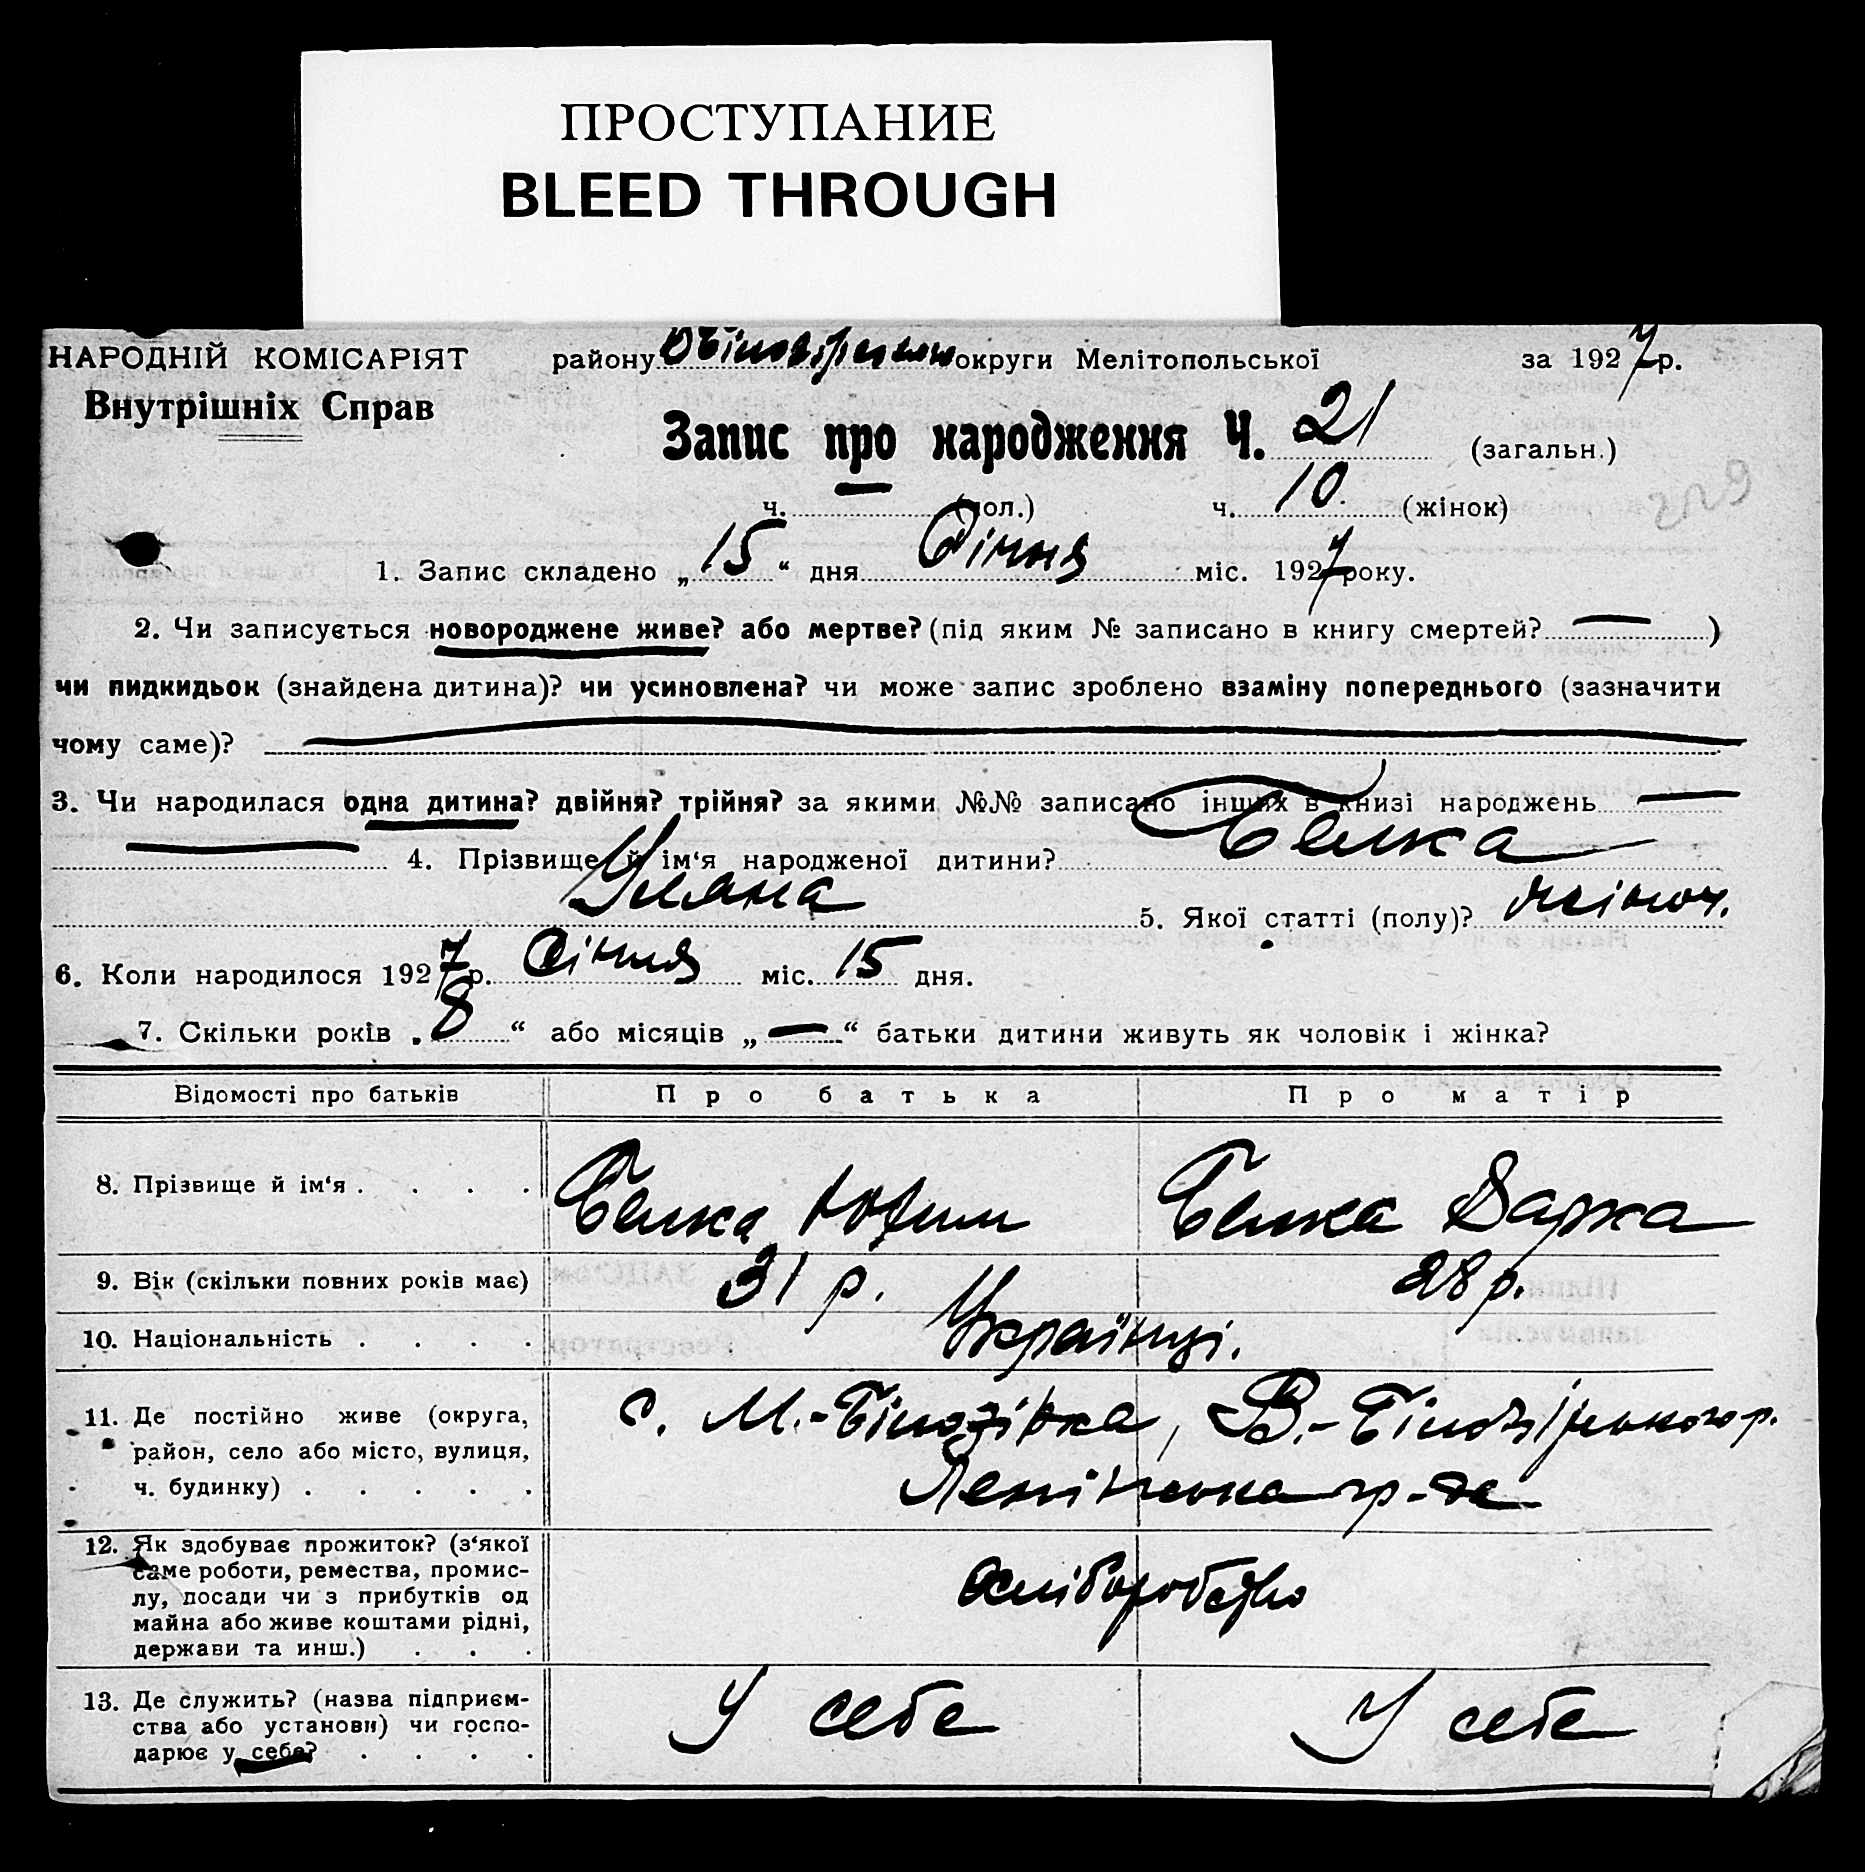 ПРОСТУПАНИЕ
BLEED THROUGH
НАРОДНІЙ КОМІСАРІЯТ району округи Мелітопольської за 1927 р.
Внутрішніх Справ
Запис про народження Ч. 21 (загальн.)
ч. — (пол.) ч. 10 (жінок)
1. Запис складено „15“ дня Січня міс. 1927 року.
2. Чи записується новороджене живе? або мертве? (під яким № записано в книгу смертей? — )
чи пидкидьок (знайдена дитина)? чи усиновлена? чи може запис зроблено взаміну попереднього (зазначити
чому саме)? —
3. Чи народилася одна дитина? двійня? трійня? за якими №№ записано інших в книзі народжень —
— 4. Прізвище й ім‘я народженої дитини? Белка
Уляна 5. Якої статті (полу)? жіноч.
6. Коли народилося 1927 р. Січня міс. 15 дня.
7. Скільки років „8“ або місяців „—“ батьки дитини живуть як чоловік і жінка?
Відомості про батьків Про батька Про матір
8. Прізвище й ім‘я . . . . Белка Юхим Белка Дарка
9. Вік (скільки повних років має) 31 р. 28 р.
10. Національність . . . . Українці.
11. Де постійно живе (округа,
район, село або місто, вулиця,
ч. будинку) . . . . .
с. М.-Білозірка, В.-Білозірського р.
Ленінська
12. Як здобуває прожиток? (з‘якої
саме роботи, ремества, промис-
лу, посади чи з прибутків од
майна або живе коштами рідні,
держави та инш.) . . .
13. Де служить? (назва підприєм-
ства або установи) чи госпо-
дарює у себе? . . . .
У себе У себе